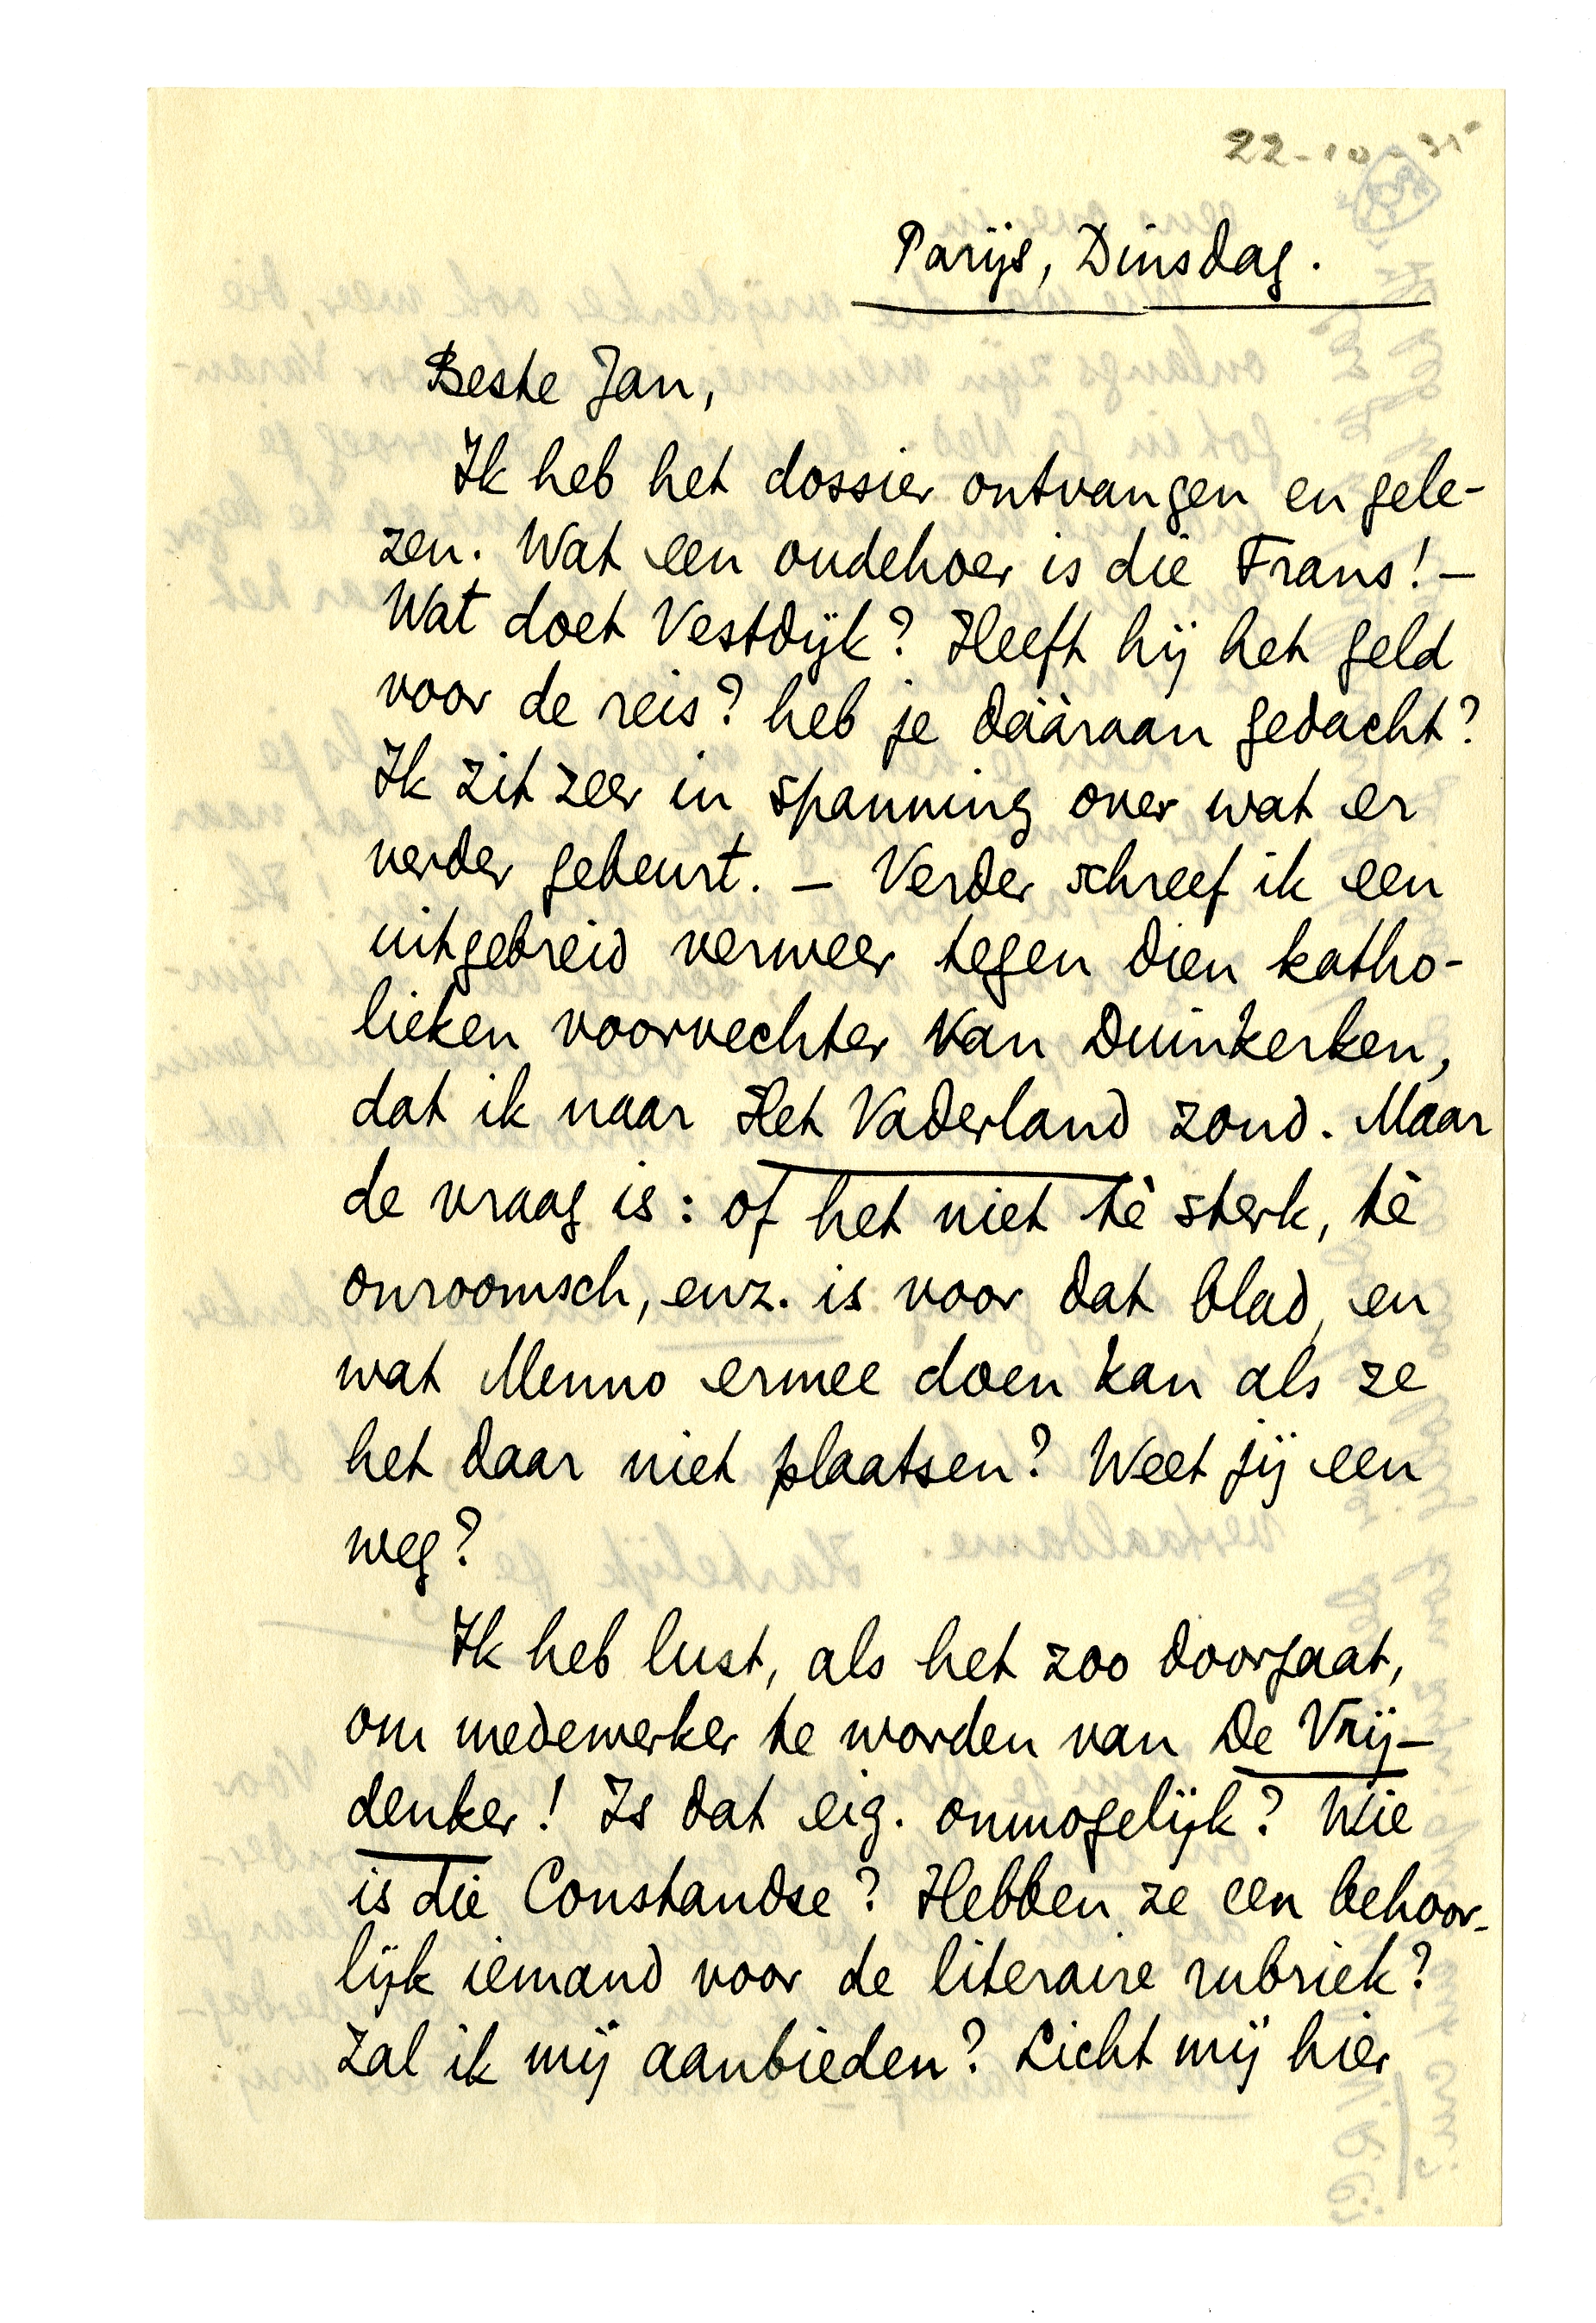 22-10-35
Parijs, Dinsdag.
Beste Jan,
Ik heb het dossier ontvangen en gele-
zen. Wat een oudehoer is die Frans! –
Wat doet Vestdijk? Heeft hij het geld
voor de reis? heb je dááraan gedacht?
Ik zit zeer in spanning over wat er
verder gebeurt. – Verder schreef ik een
uitgebreid verweer tegen dien katho-
lieken voorvechter Van Duinkerken,
dat ik naar Het Vaderland zond. Maar
de vraag is: of het niet tè sterk, tè
onroomsch, enz. is voor dat blad, en
wat Menno ermee doen kan als ze
het daar niet plaatsen? Weet jij een
weg?
Ik heb lust, als het zoo doorgaat,
om medewerker te worden van De Vrij-
denker! Is dat eig. onmogelijk? Wie
is die Constandse? Hebben ze een behoor-
lijk iemand voor de literaire rubriek?
Zal ik mij aanbieden? Licht mij hier